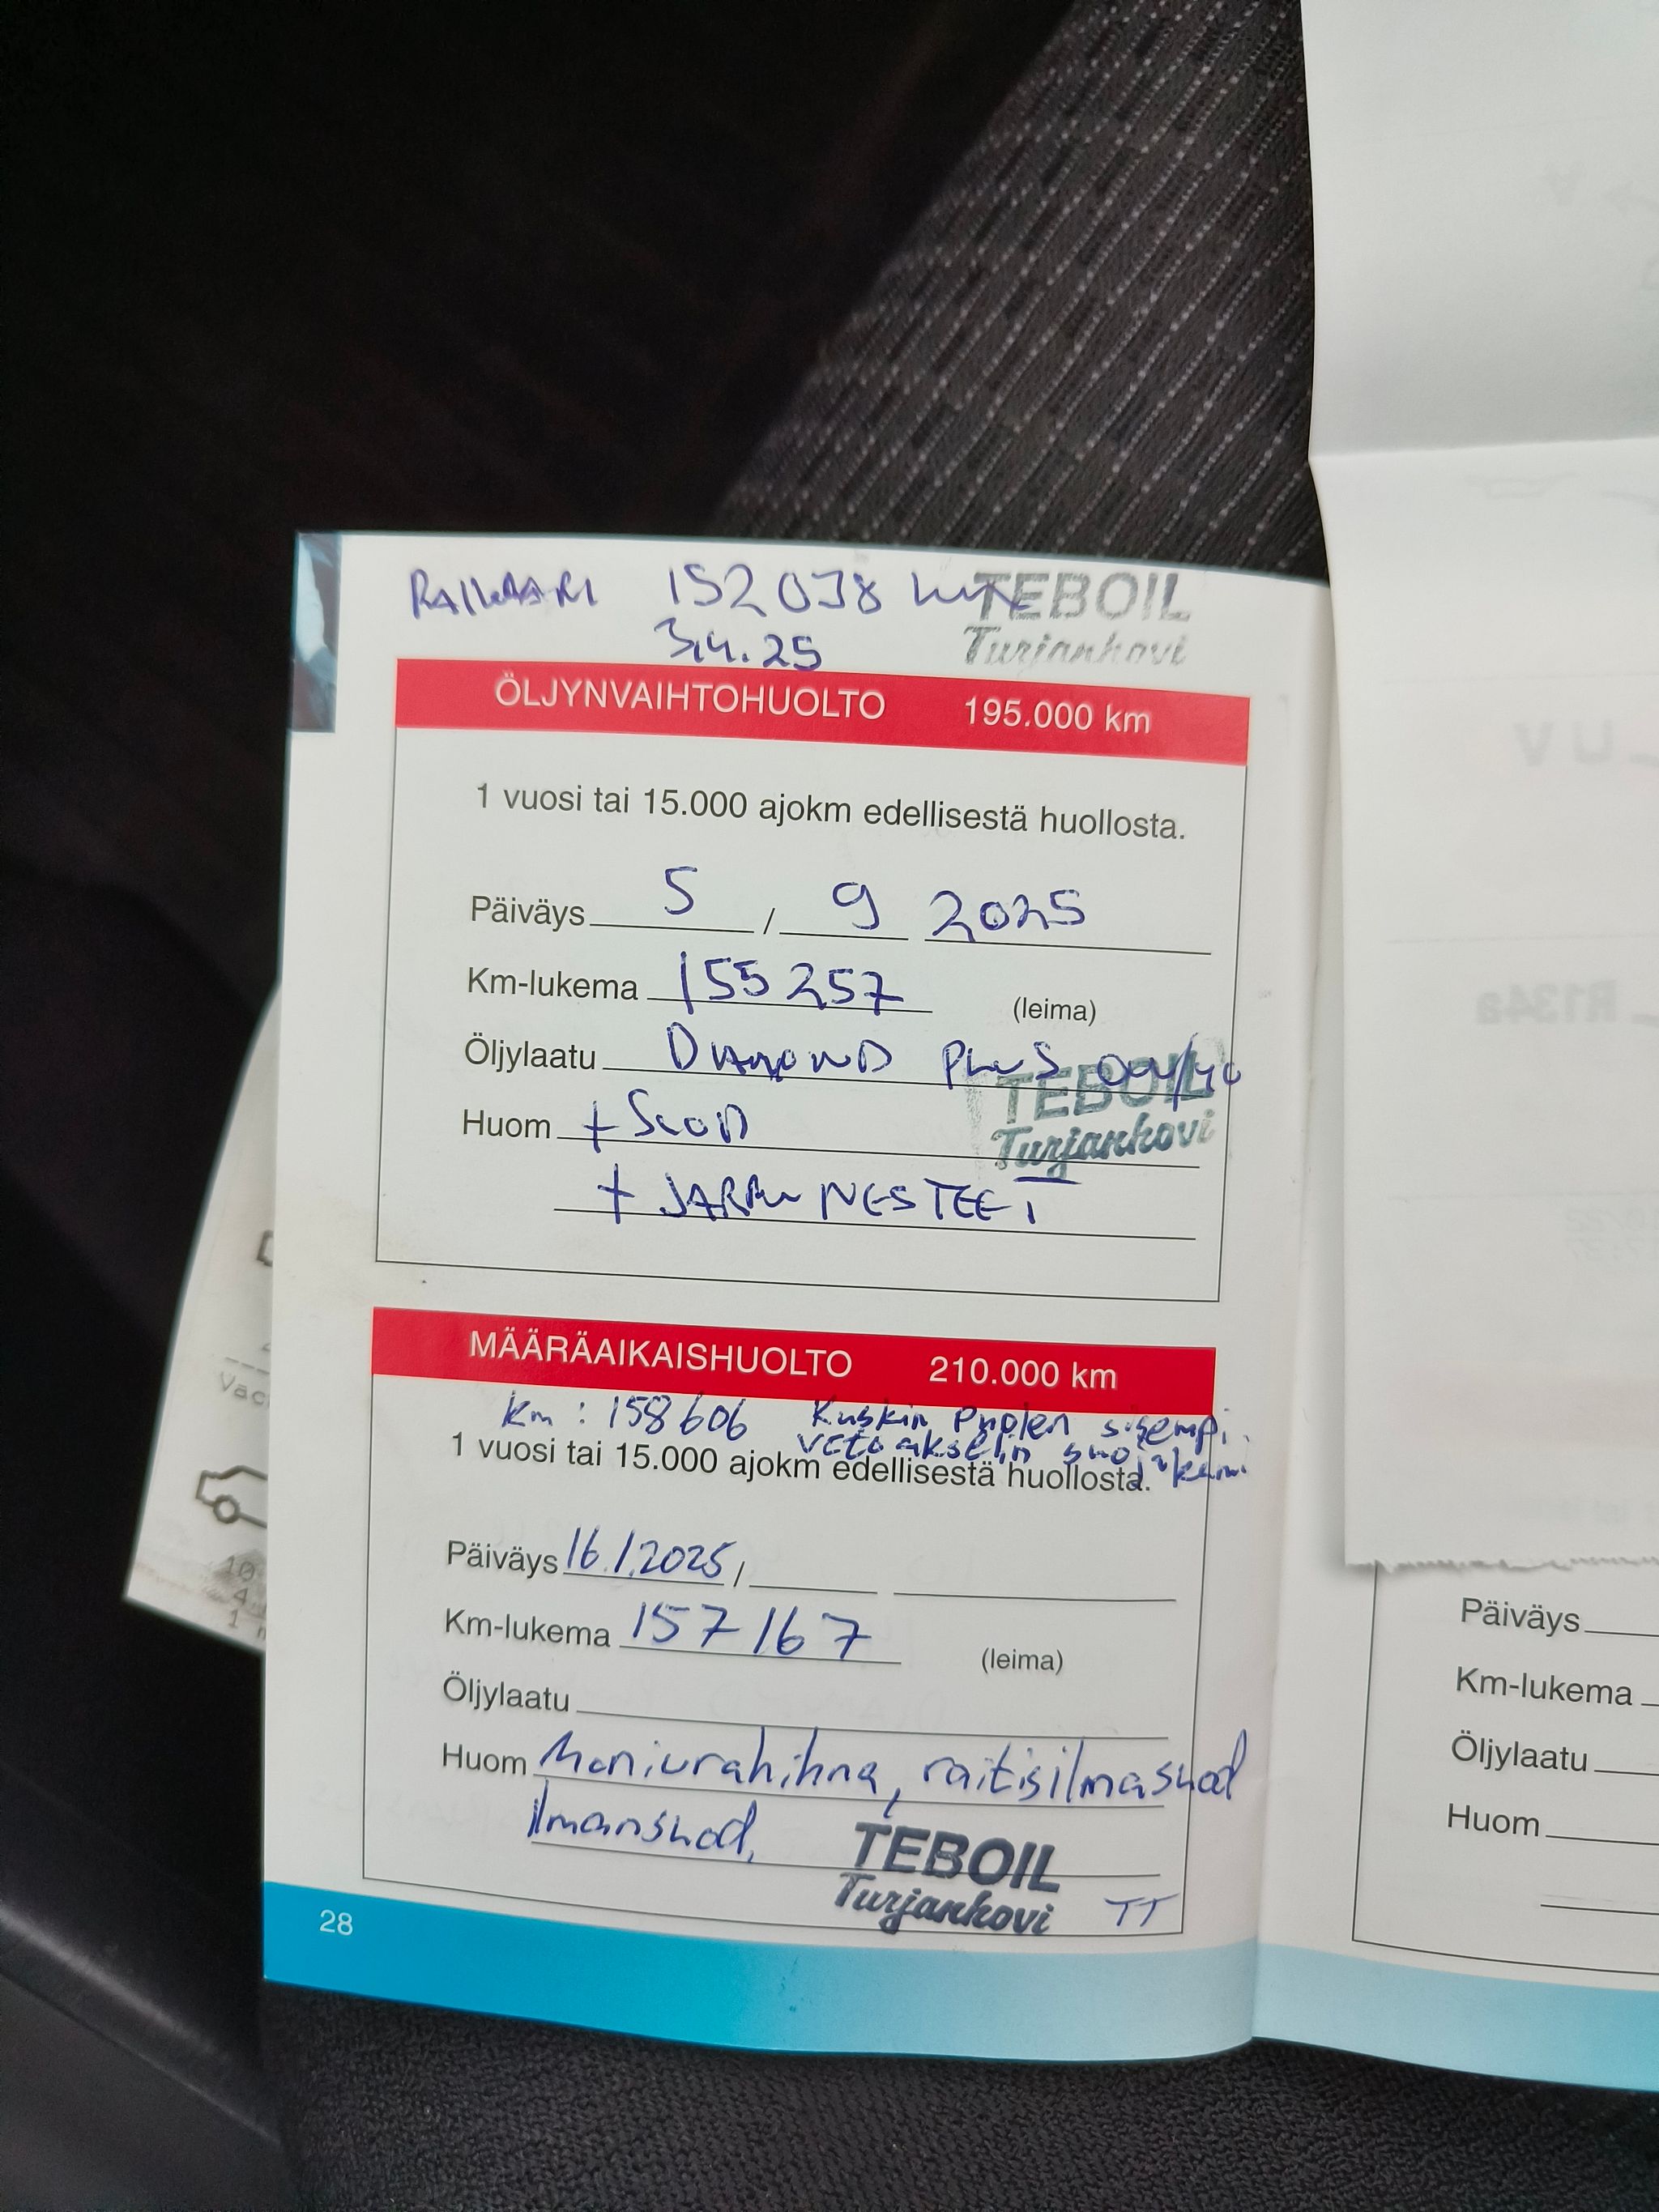 152038 km TEBOIL
3.4.25 Turjankovi
ÖLJYNVAIHTOHUOLTO 195.000 km
1 vuosi tai 15.000 ajokm edellisestä huollosta.
Päiväys 5 / 9 2025
Km-lukema 155257 (leima)
Öljylaatu DIAMOND PLUS
TEBOIL
Huom + SUOD Turjankovi
+ JARRU NESTEET
MÄÄRÄAIKAISHUOLTO 210.000 km
Km : 158606 Kuskin puolen sisempi
vetoakselin suojakumi
1 vuosi tai 15.000 ajokm edellisestä huollosta.
Päiväys 16.1.2025 /
Km-lukema 157167 (leima)
Öljylaatu
Huom Moniurahihna, raitisilmasuod
ilmansuod,
TEBOIL
Turjankovi TT
28
Päiväys
Km-lukema
Öljylaatu
Huom
R134a
UV
Vac
10
4
1